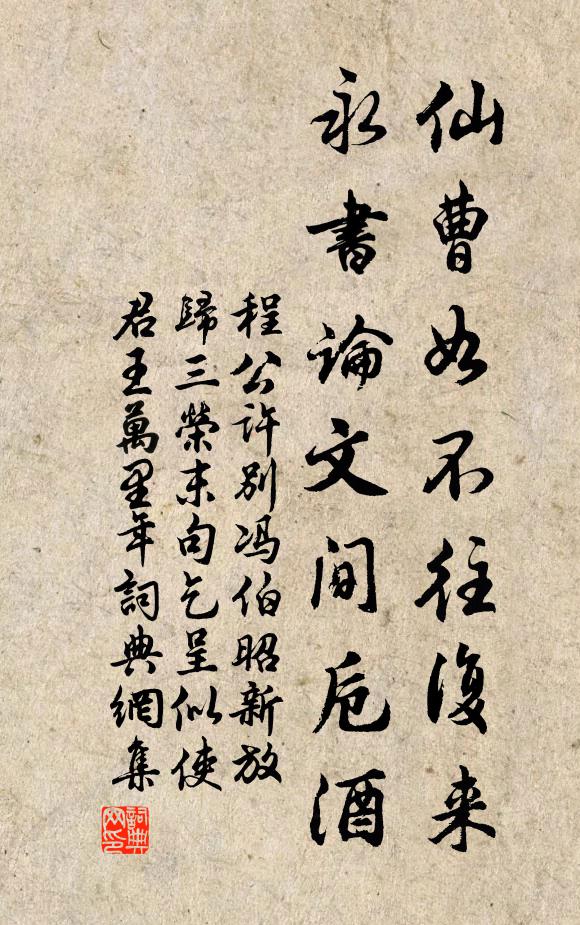 仙曹如不往復来
永書論文间卮酒
程公许别冯伯昭新放
歸三榮末句乞呈似使
君王萬里年詞典網集
詞典网印